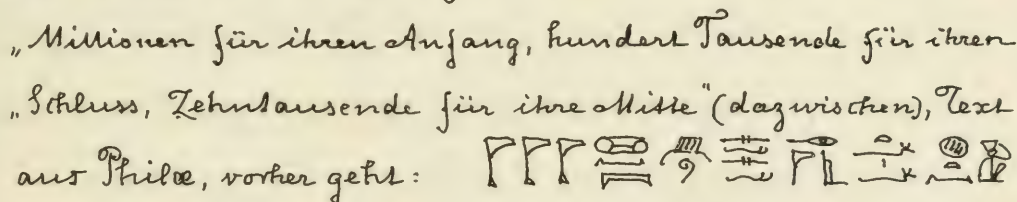 „Millionen für ihren Anfang, hundert Tausende für ihren
„Schluss, Zehntausende für ihre Mitte" (dazwischen), Text
aus Philæ, vorher geht: